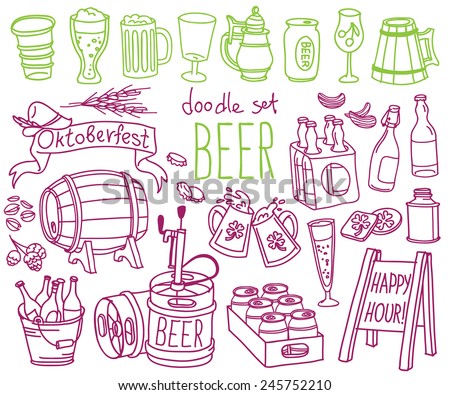 BEER
doodle set
BEER
Oktoberfest
BEER
HAPPY
HOUR!
shutterstock
www.shutterstock.com · 245752210